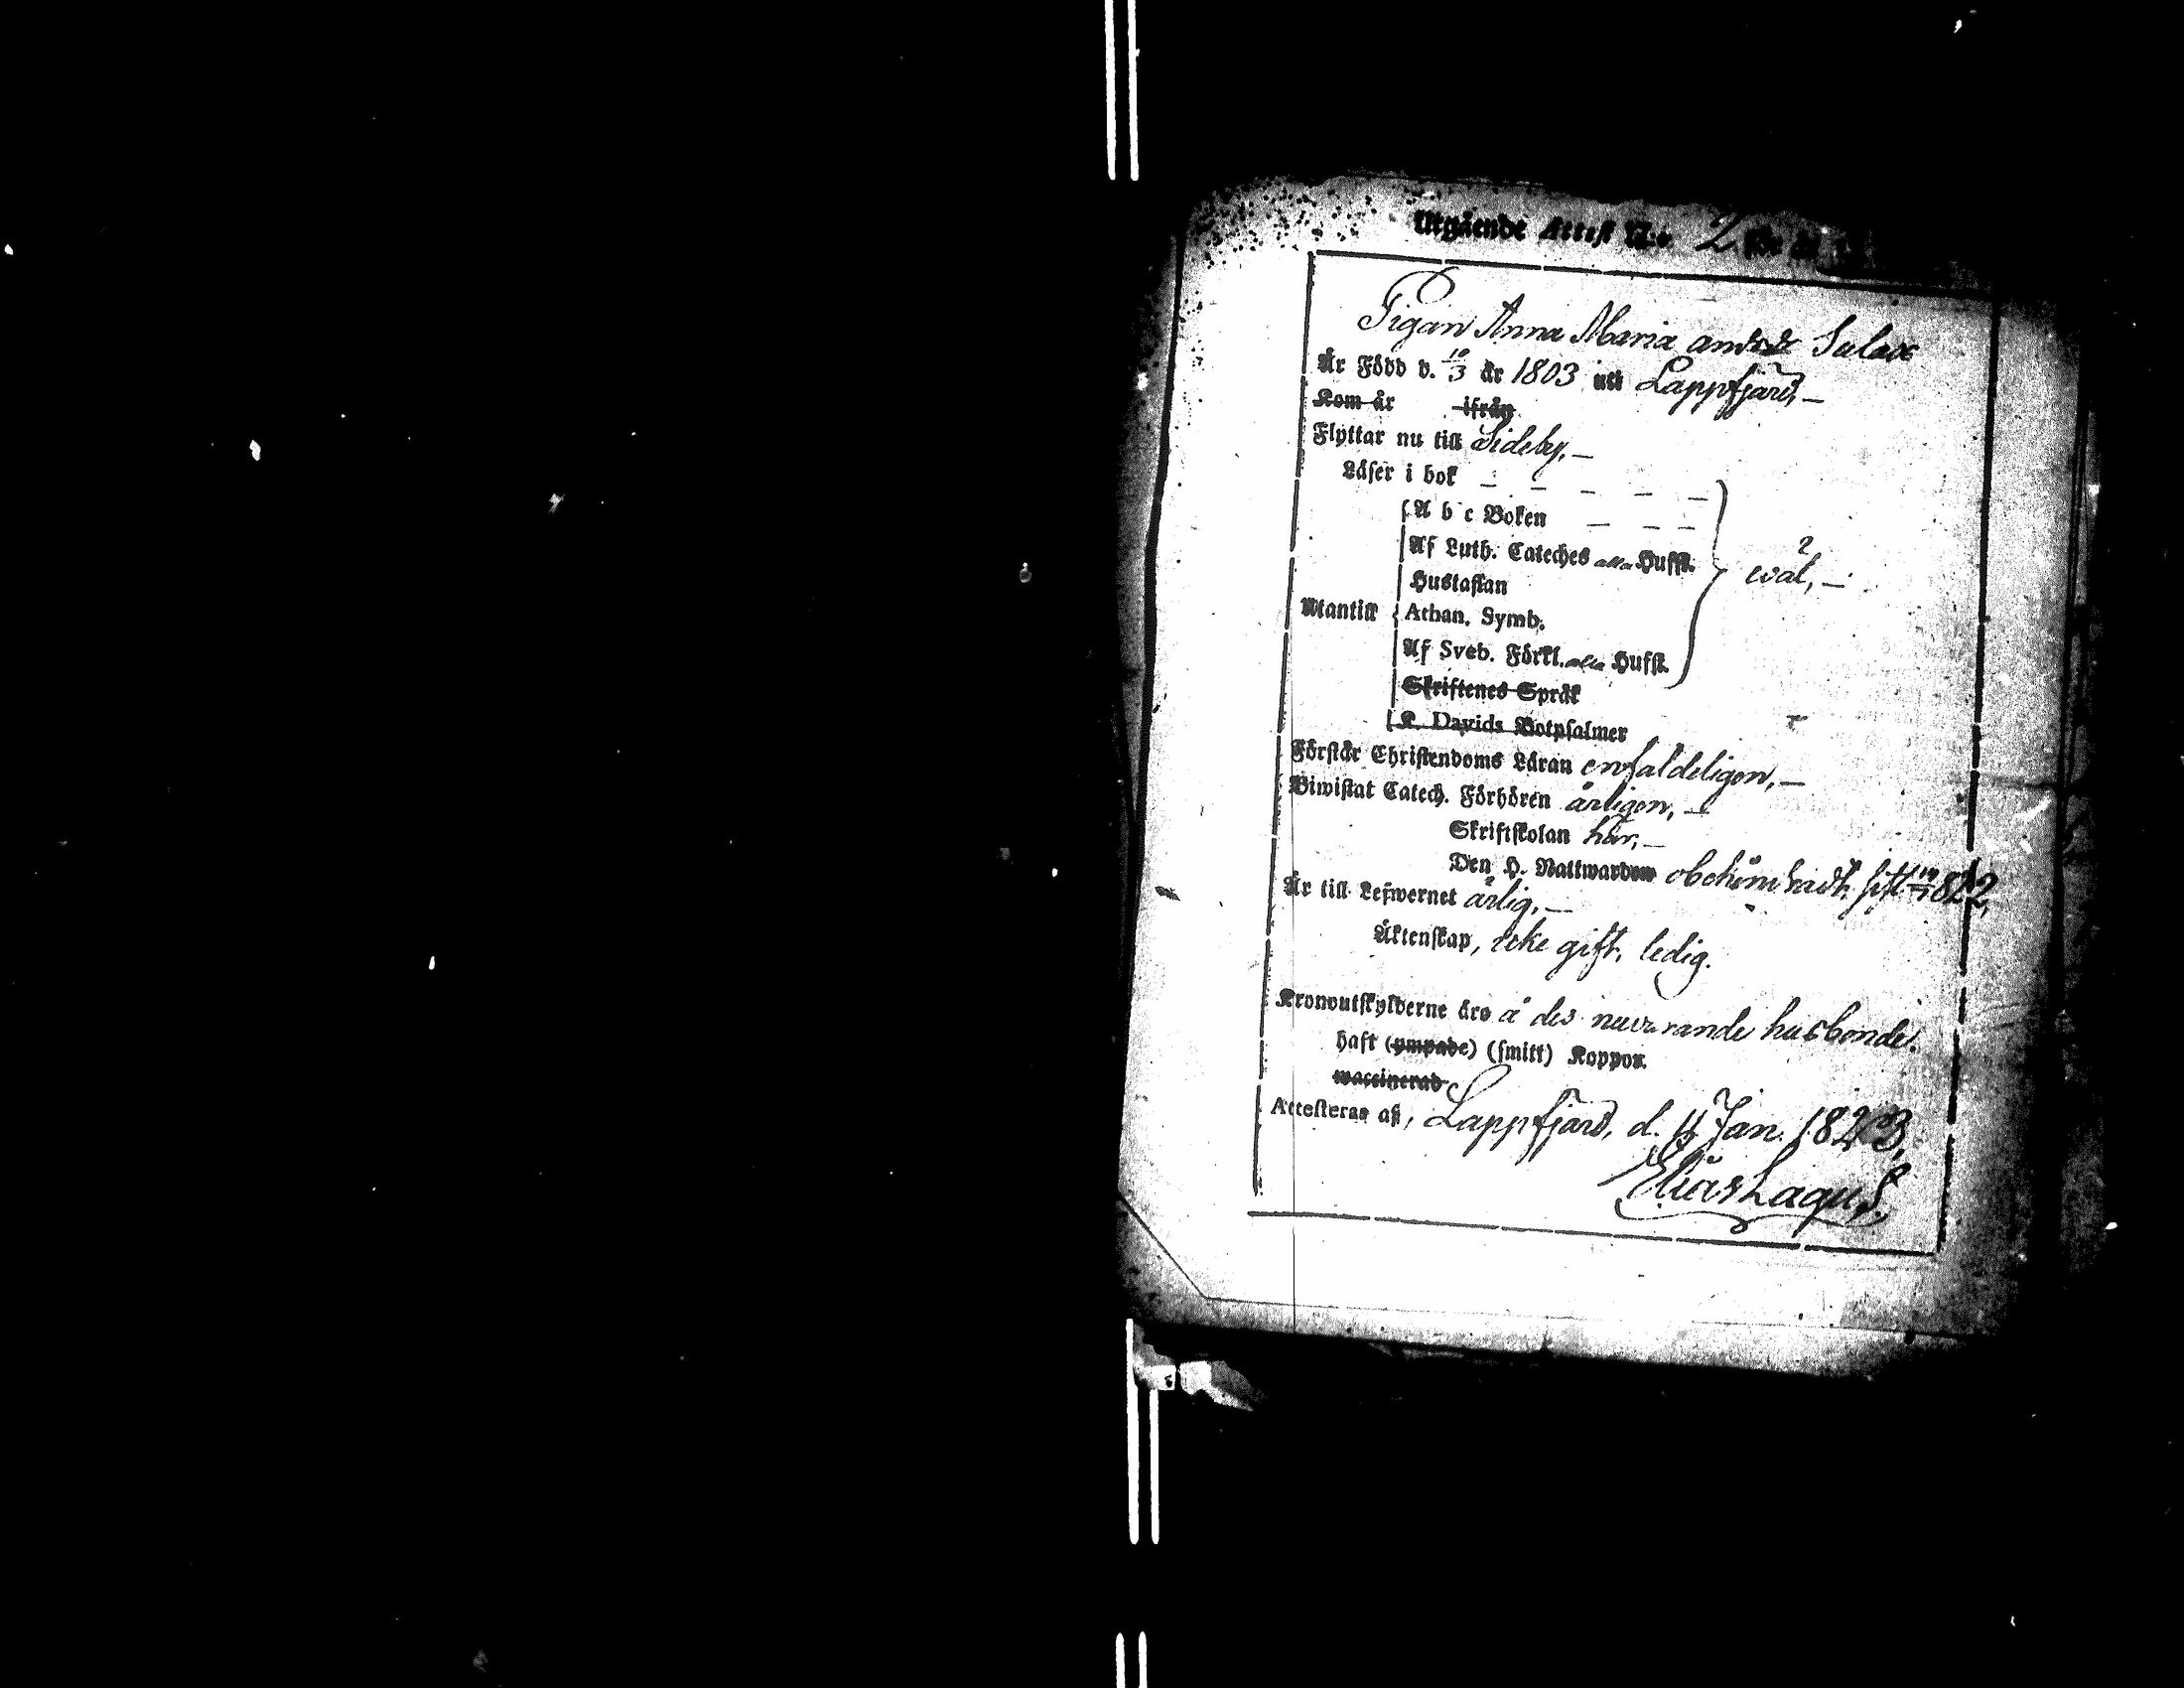 Utgående Attest N:o 2
Pigan Anna Maria Andsdr Sulax
Är Född d. 10/3 år 1803 uti Lappfjärd,—
Kom år ifrån
Flyttar nu till Sideby,—
Läser i bok — — — — —
A b c Boken — — —
Af Luth. Cateches alla Hufst.
wäl,—
Hustaflan
Utantill
Athan. Symb.
Af Sveb. Förkl. alla Hufst.
Skriftenes Språk
K. Davids Botpsalmer
Förstår Christendoms Läran enfaldeligen,—
Biwistat Catech. Förhören årligen,—
Skriftskolan här,—
Den H. Nattwarden 1822,
Är till Lefwernet ärlig,—
Äktenskap, icke gift, ledig.
Kronoutskylderne äro å des nuvarande husbonde.
haft (ympade) (smitt) Koppor.
waccinerad
Attesteras af, Lappfjärd, d. Jan. 1823,
Elias Lagus.